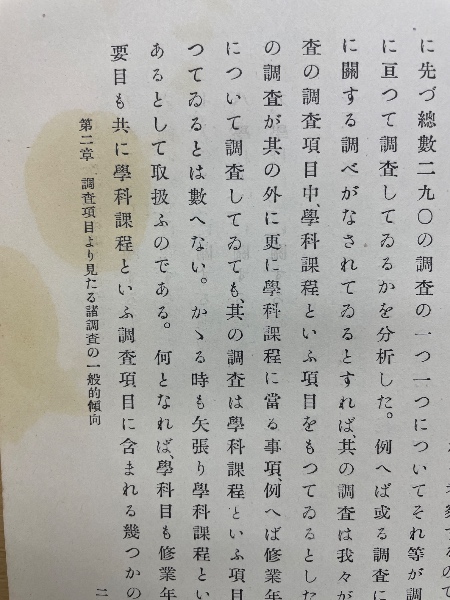 に先づ總數二九〇の調査の一つ一つについてそれ等が調
に亘つて調査してゐるかを分析した。例へば或る調査に
に關する調べがなされてゐるとすれば、其の調査は我々が
査の調査項目中、學科課程といふ項目をもつてゐるとした
の調査が其の外に更に學科課程に當る事項、例へば修業年
について調査してゐても、其の調査は學科課程といふ項目
つてゐるとは數へない。かゝる時も矢張り學科課程とい
あるとして取扱ふのである。何となれば、學科目も修業年
要目も共に學科課程といふ調査項目に含まれる幾つかの
第二章　調査項目より見たる諸調査の一般的傾向
二